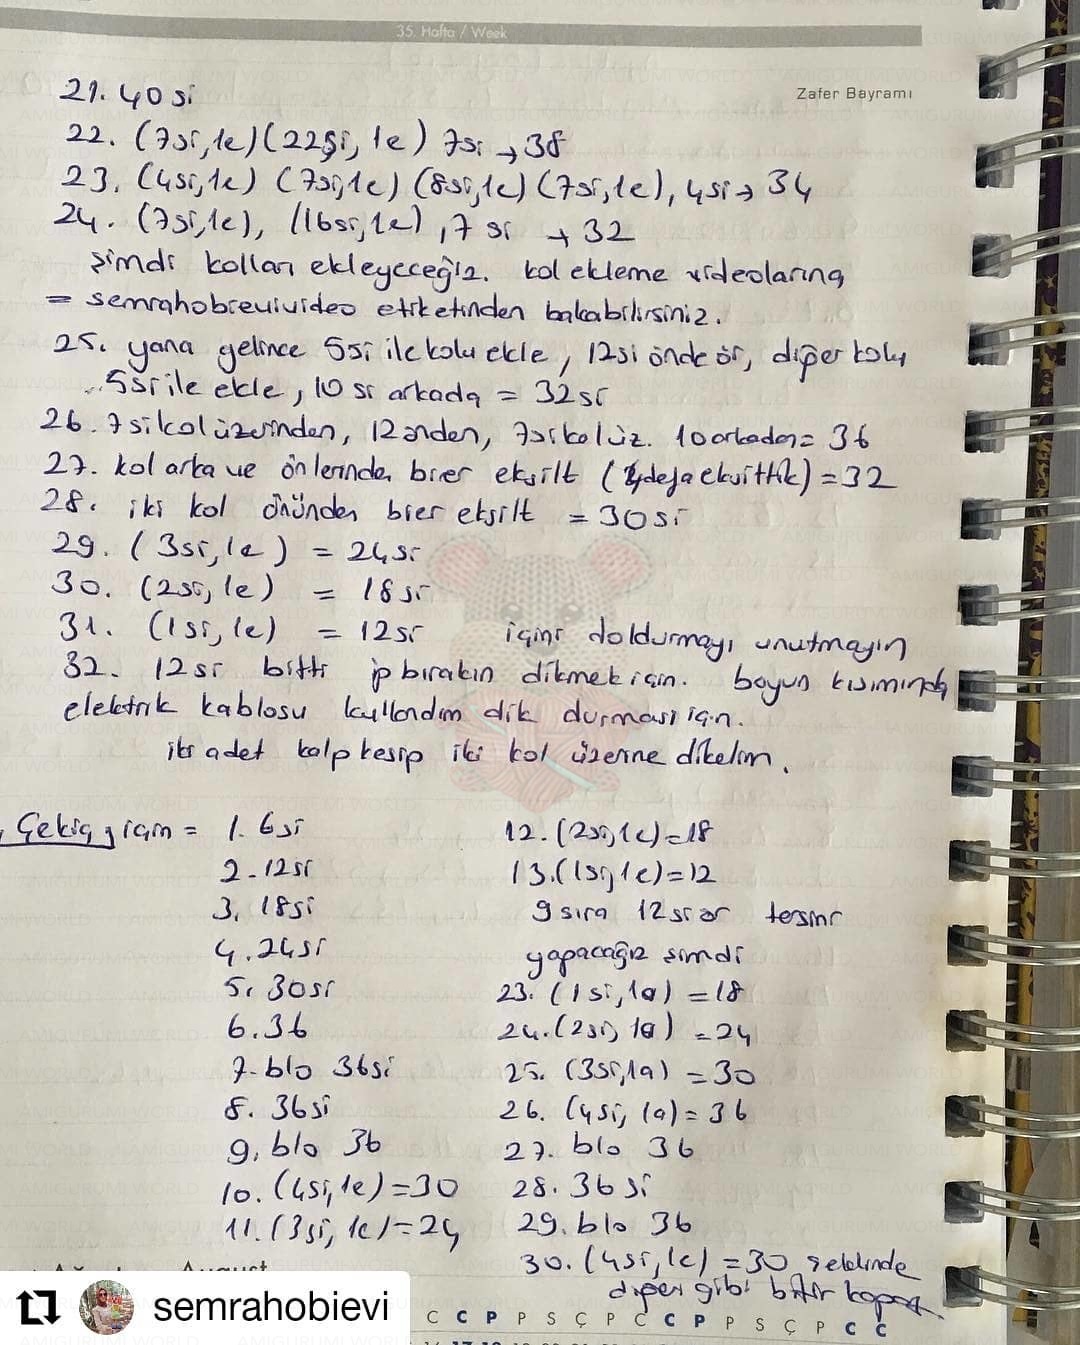 35. Hafta / Week
Zafer Bayramı
21. 40 si
22. (7si, 1e) (22si, 1e) 7si → 38
23. (4si, 1e) (7si, 1e) (8si, 1e) (7si, 1e), 4si → 34
24. (7si, 1e), (16si, 1e), 7 si → 32
Şimdi kolları ekleyeceğiz. kol ekleme videolarına
= semrahobievivideo etiketinden bakabilirsiniz.
25. yana gelince 5si ile kolu ekle, 12si önde ör, diğer kolu
5si ile ekle, 10 si arkada = 32si
26. 7si kol üzerinden, 12 önden, 7si kol üz. 10 arkadan = 36
27. kol arka ve önlerinden birer eksilt (4 defa eksilttik) = 32
28. iki kol önünden birer eksilt = 30si
29. (3si, 1e) = 24si
30. (2si, 1e) = 18si
31. (1si, 1e) = 12si içini doldurmayı unutmayın
32. 12si bitti ip bırakın dikmek için. boyun kısmında
elektrik kablosu kullandım dik durması için.
iki adet kalp kesip iki kol üzerine dikelim.
Çekiç için = 1. 6si
2. 12si
3. 18si
4. 24si
5. 30si
6. 36
7. blo 36si
8. 36si
9. blo 36
10. (4si, 1e) = 30
11. (3si, 1e) = 24
12. (2si, 1e) = 18
13. (1si, 1e) = 12
9 sıra 12si ör tersini
yapacağız şimdi
23. (1si, 1a) = 18
24. (2si, 1a) = 24
25. (3si, 1a) = 30
26. (4si, 1a) = 36
27. blo 36
28. 36 si
29. blo 36
30. (4si, 1e) = 30 şeklinde
diğer gibi bitir kopar
August
semrahobievi
C C P P S Ç P C C P P S Ç P C C